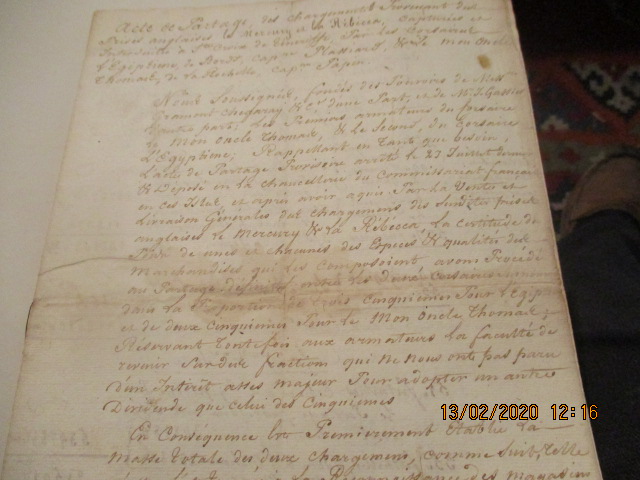 Acte de Partage, des chargements Provenant des
Prises anglaises le Mercury et la Rébecca, capturées et
Introduites à Ste Croix de Ténériffe Par les Corsaires
L'Egyptienne, de Bordx, capne Plassiard, & le mon oncle
Thomas, de la Rochelle, capne Papin
Nous Soussignés, fondés des Pouvoirs de Messrs
Gramont Chegaray & Ce d'une Part, et de Mr. J. Gassies
d'autre part; Les Premiers armateurs du Corsaire
le Mon oncle Thomas, & le Second, du Corsaire
L'Egyptienne; Rappellant en tant que besoin,
L'acte de Partage Provisoire arrêté le 27 Juillet dernier
& Déposé en la Chancellerie du Commissariat français
en ces Isles et après avoir acquis Par la Vente et
Livraison Générales des Chargements des Susdites prises
anglaises le Mercury & la Rébecca la Certitude du
de unes et chacunes des Espèces & qualités des
Marchandises qui les composoient avons Procédé
au Partage définitif entre les deux Corsaires
dans la Proportion de trois cinquièmes Pour l'Egip
et de deux Cinquièmes Pour le Mon Oncle Thomas;
Réservant toutefois aux armateurs la faculté de
revenir Sur des fractions qui ne nous ont pas paru
d'un Intérêt assés majeur Pour adopter un autre
Dividende que celui des Cinquièmes
En Conséquence Premièrement Etablie la
Masse totale des deux chargements, comme
la Reconnaissance des magasins
13/02/2020 12:16